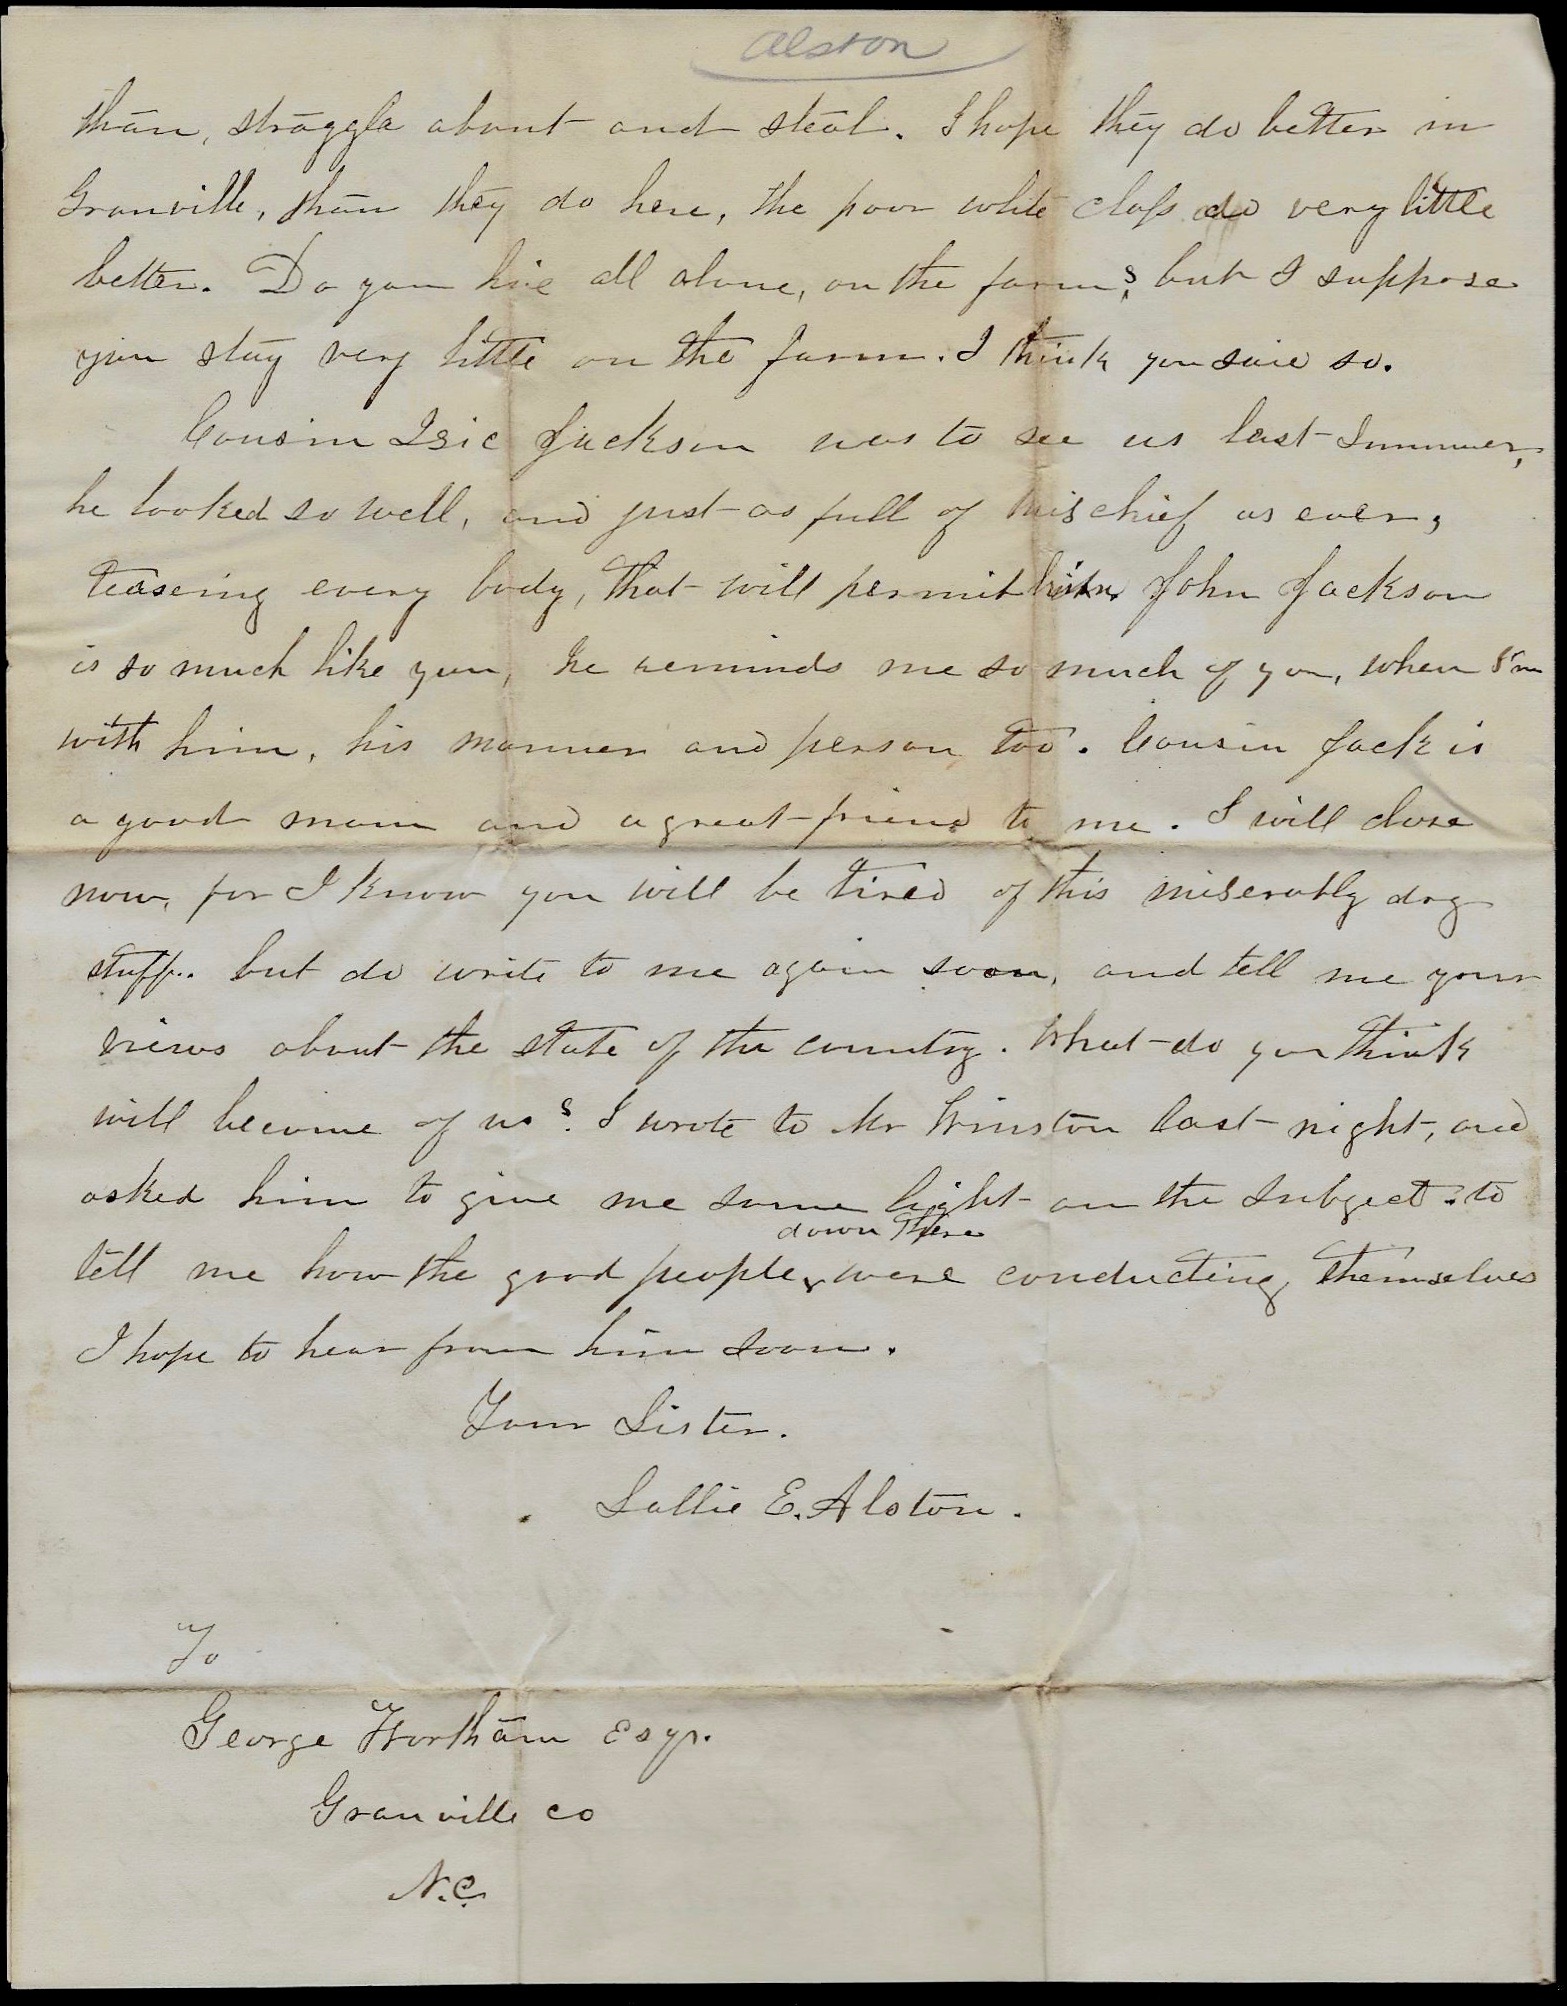 Alston
than, straggle about and steal. I hope they do better in
Granville, than they do here, the poor white class do very little
better. Do you live all alone, on the farm? but I suppose
you stay very little on the farm. I think you said so.
Cousin Isic Jackson was to see us last Summer,
he looked so well, and just as full of mischief as ever,
teaseing every body, that will permit him. John Jackson
is so much like you, he reminds me so much of you, when I'm
with him, his manner and person too. Cousin Jack is
a good man and a great friend to me. I will close
now, for I know you will be tired of this miserably dry
stuff. but do write to me again soon, and tell me your
views about the state of the country. What do you think
will become of us? I wrote to Mr Winston last night, and
asked him to give me some light on the Subject. to
down there
tell me how the good people were conducting themselves
I hope to hear from him soon.
Your Sister.
Sallie E. Alston.
To
George Wortham Esqr.
Granville co
N.C.